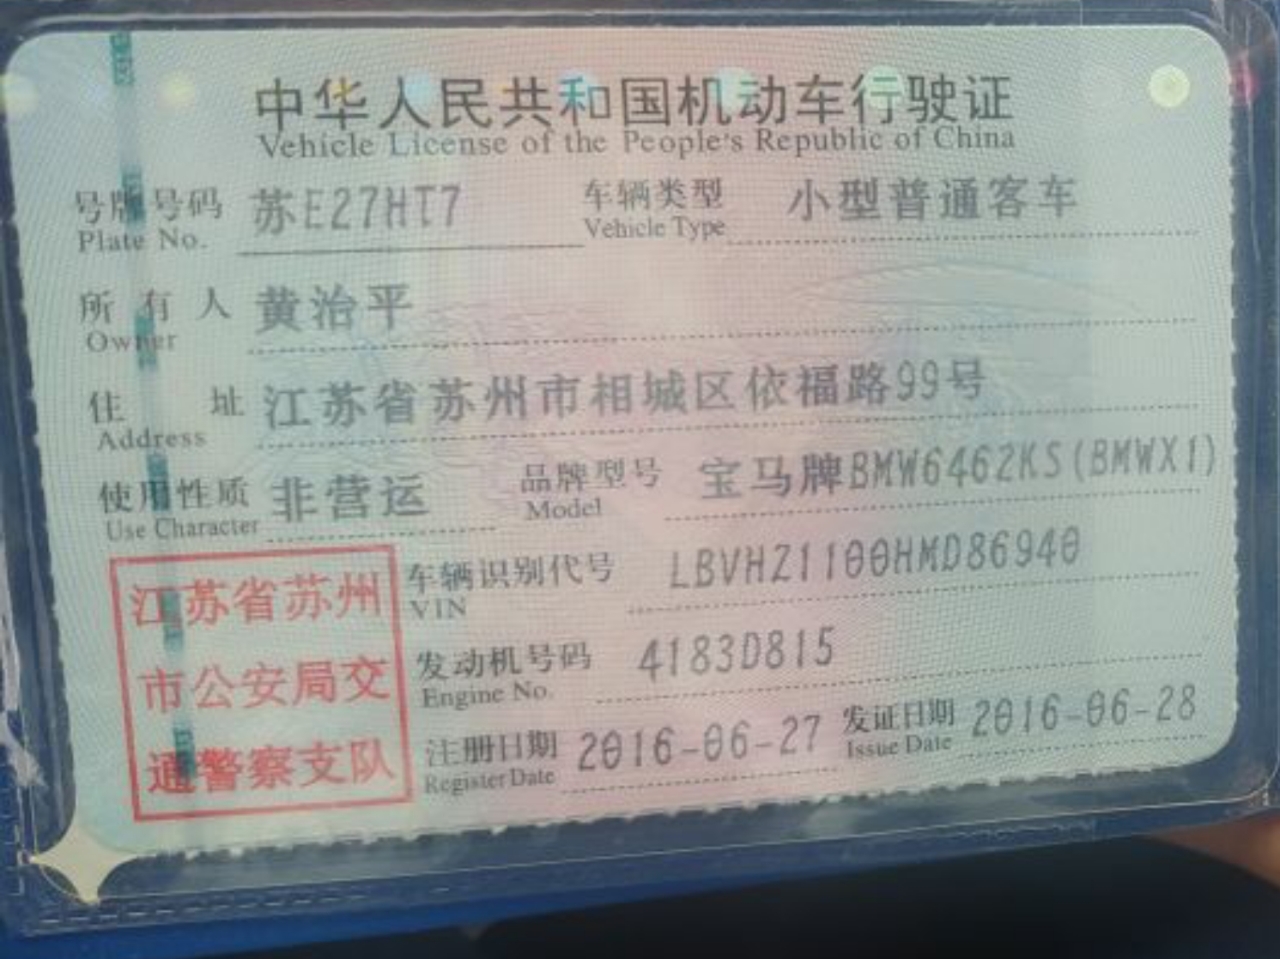 中华人民共和国机动车行驶证
Vehicle License of the People's Republic of China
号牌号码 苏E27HT7 车辆类型 小型普通客车
Plate No. Vehicle Type
所有人 黄治平
Owner
住址 江苏省苏州市相城区依福路99号
Address
使用性质 非营运 品牌型号 宝马牌BMW6462KS(BMWX1)
Use Character Model
江苏省苏州
市公安局交
通警察支队
车辆识别代号 LBVHZ1100HMD86940
VIN
发动机号码 4183D815
Engine No.
注册日期 2016-06-27 发证日期 2016-06-28
Register Date Issue Date